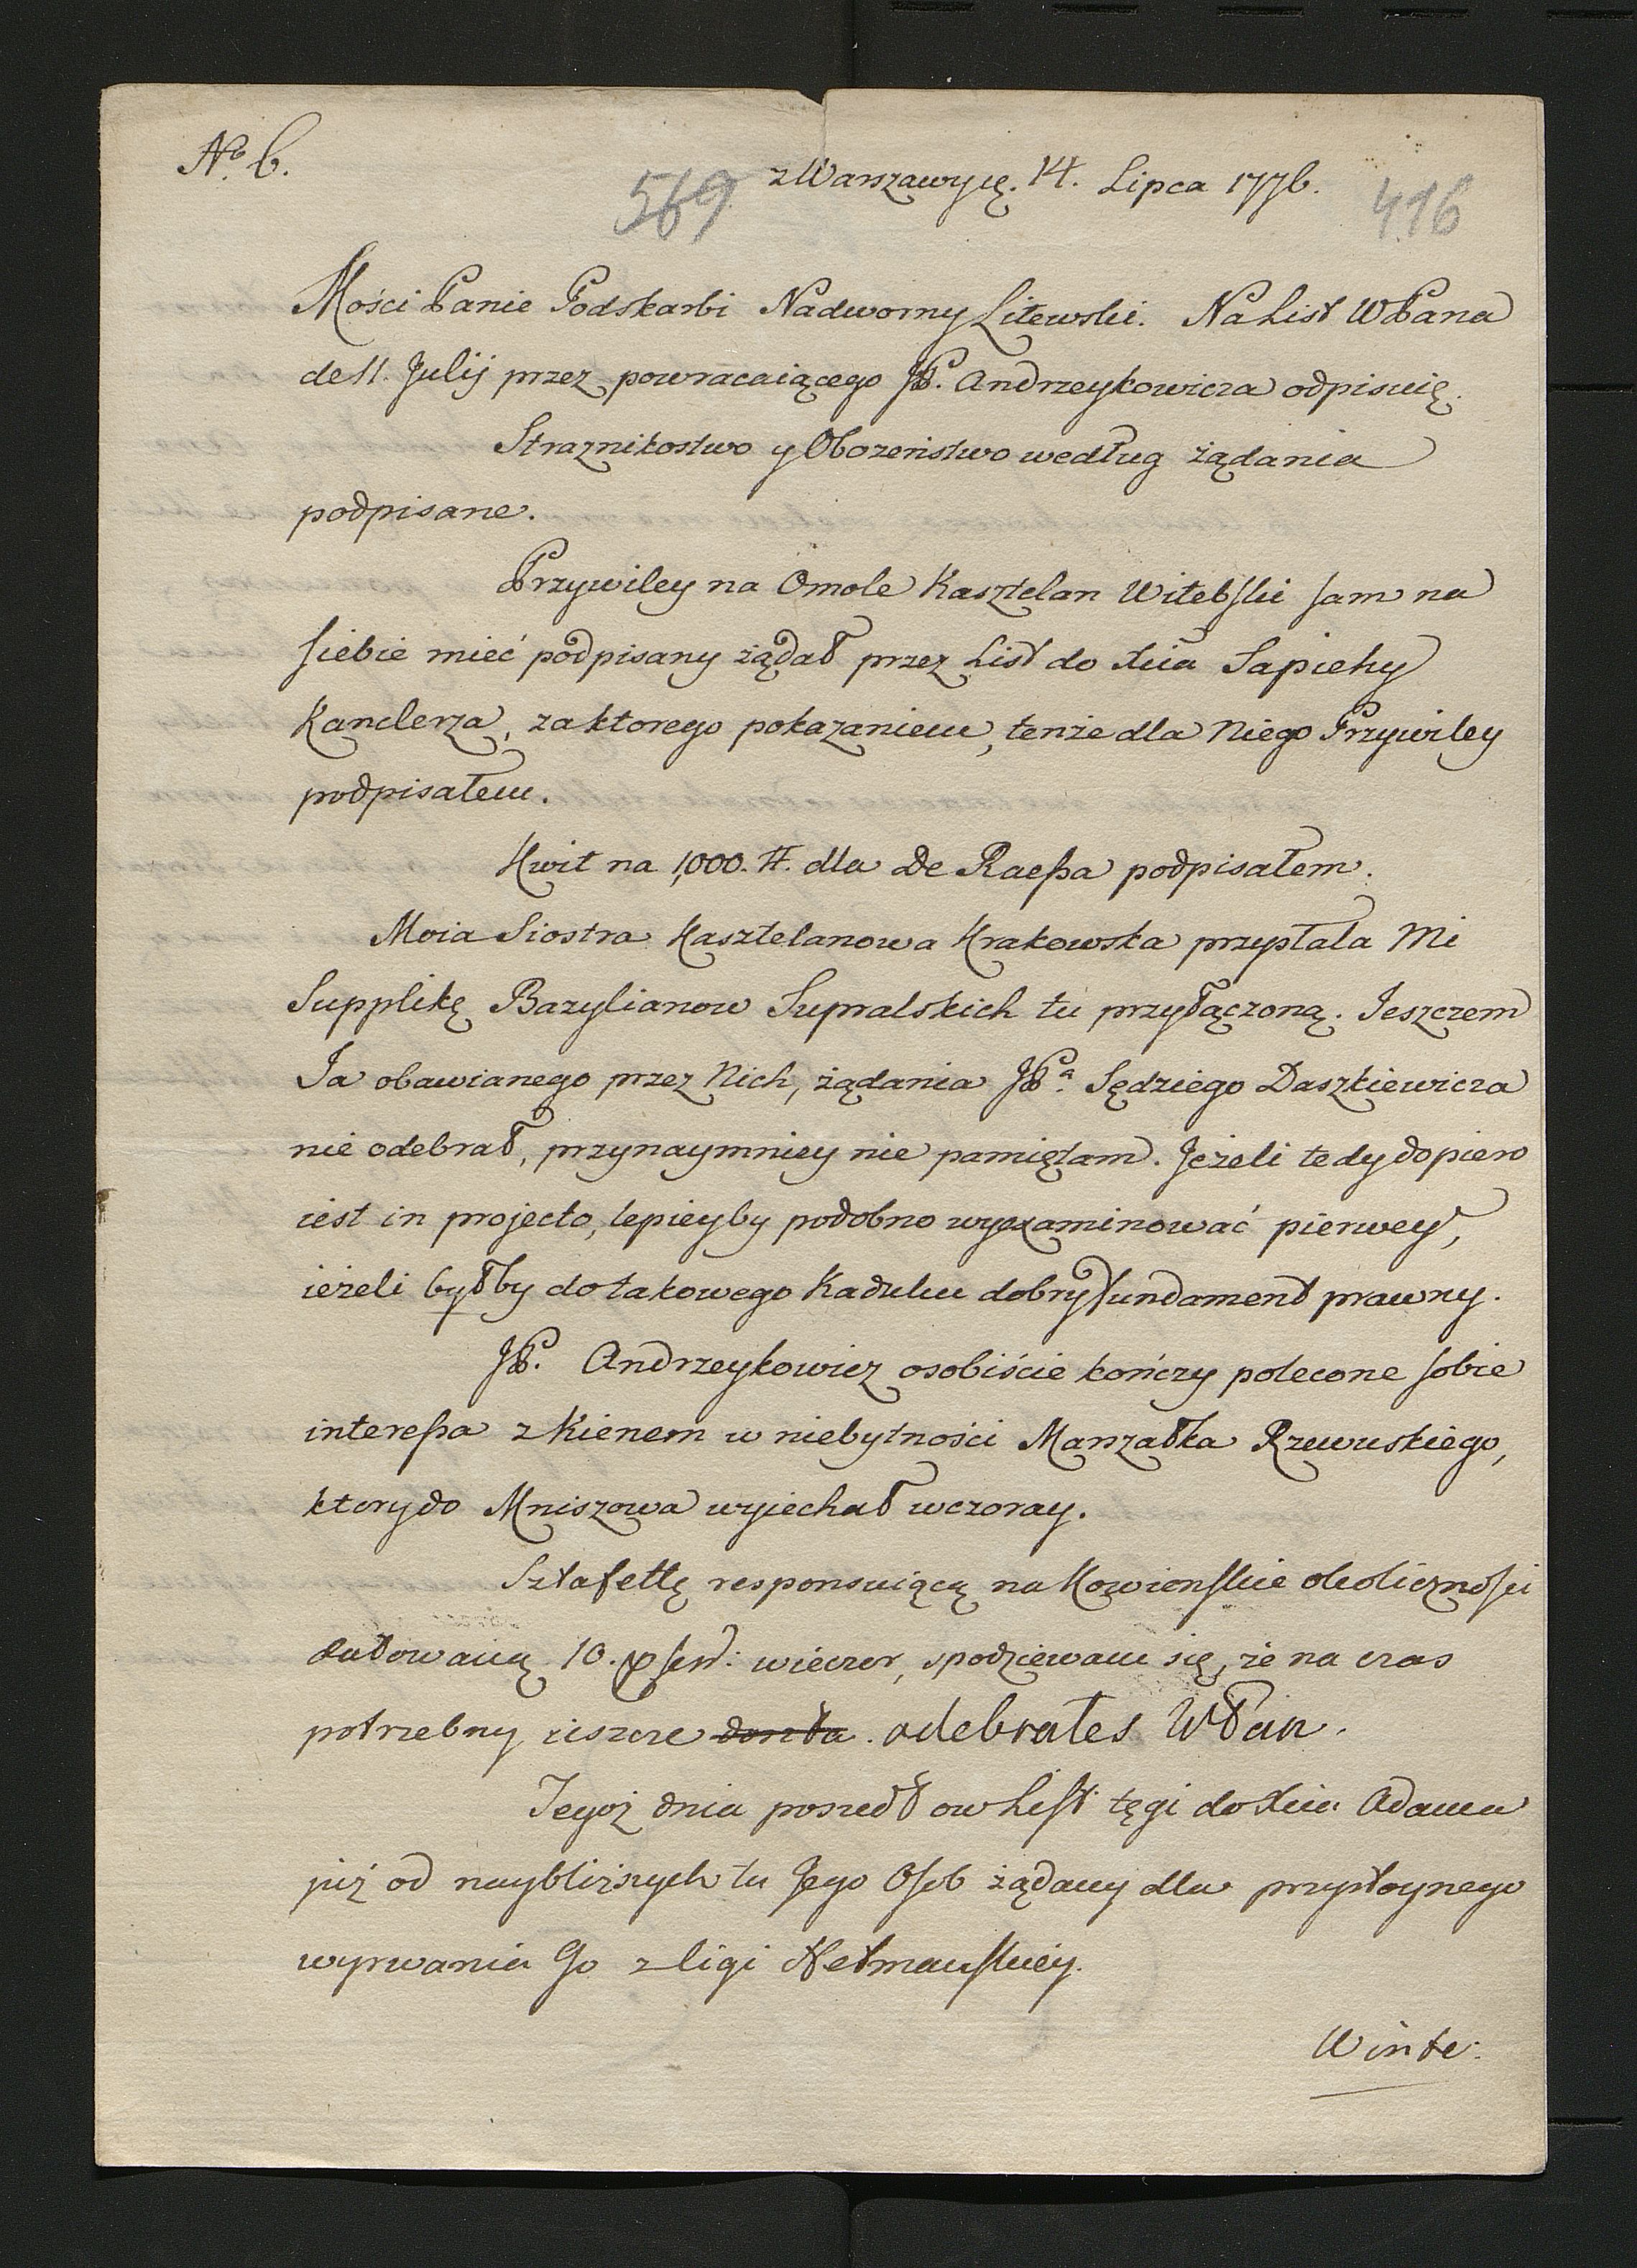 No. 6.
z Warszawy ię. 14. Lipca 1776.
569 416
Mości Panie Podskarbi Nadworny Litewski. Na List WPana
de 11. Julij przez powracaiącego JP. Andrzeykowicza odpisuię.
Straznikostwo y Obozeństwo według żądania
podpisane.
Przywiley na Omole Kasztelan Witebski sam na
siebie mieć podpisany żądał przez List do Xcia Sapiehy
Kanclerza, za ktorego pokazaniem, tenże dla Niego Przywiley
podpisałem.
Kwit na 1,000. #. dla De Raeßa podpisałem.
Moia Siostra Kasztelanowa Krakowska przysłala Mi
Supplikę Bazylianow Supralskich tu przyłączoną. Jeszczem
Ja obawianego przez Nich, żądania JPa. Sędziego Daszkiewicza
nie odebrał, przynaymniey nie pamiętam. Jeżeli tedy dopiero
iest in projecto, lepieyby podobno wyexaminować pierwey,
ieżeli byłby do takowego Kaduku dobry fundament prawny.
JP. Andrzeykowicz osobiście kończy polecone sobie
intereßa z Kienem w niebytności Marszałka Rzewuskiego,
ktory do Mniszowa wyiechał wczoray.
Sztafettę responsuiącą na Kowienskie okolicznosci
datowaną 10. wieczor, spodziewam się, że na czas
potrzebny ieszcze odebrałes WPan.
Tegoż dnia poszedł ow List tęgi do Xcia Adama
już od naybliższych tu Jego Osob żądany dla przystoynego
wyrwania Go z ligi Hetmanskiey.
Winte: